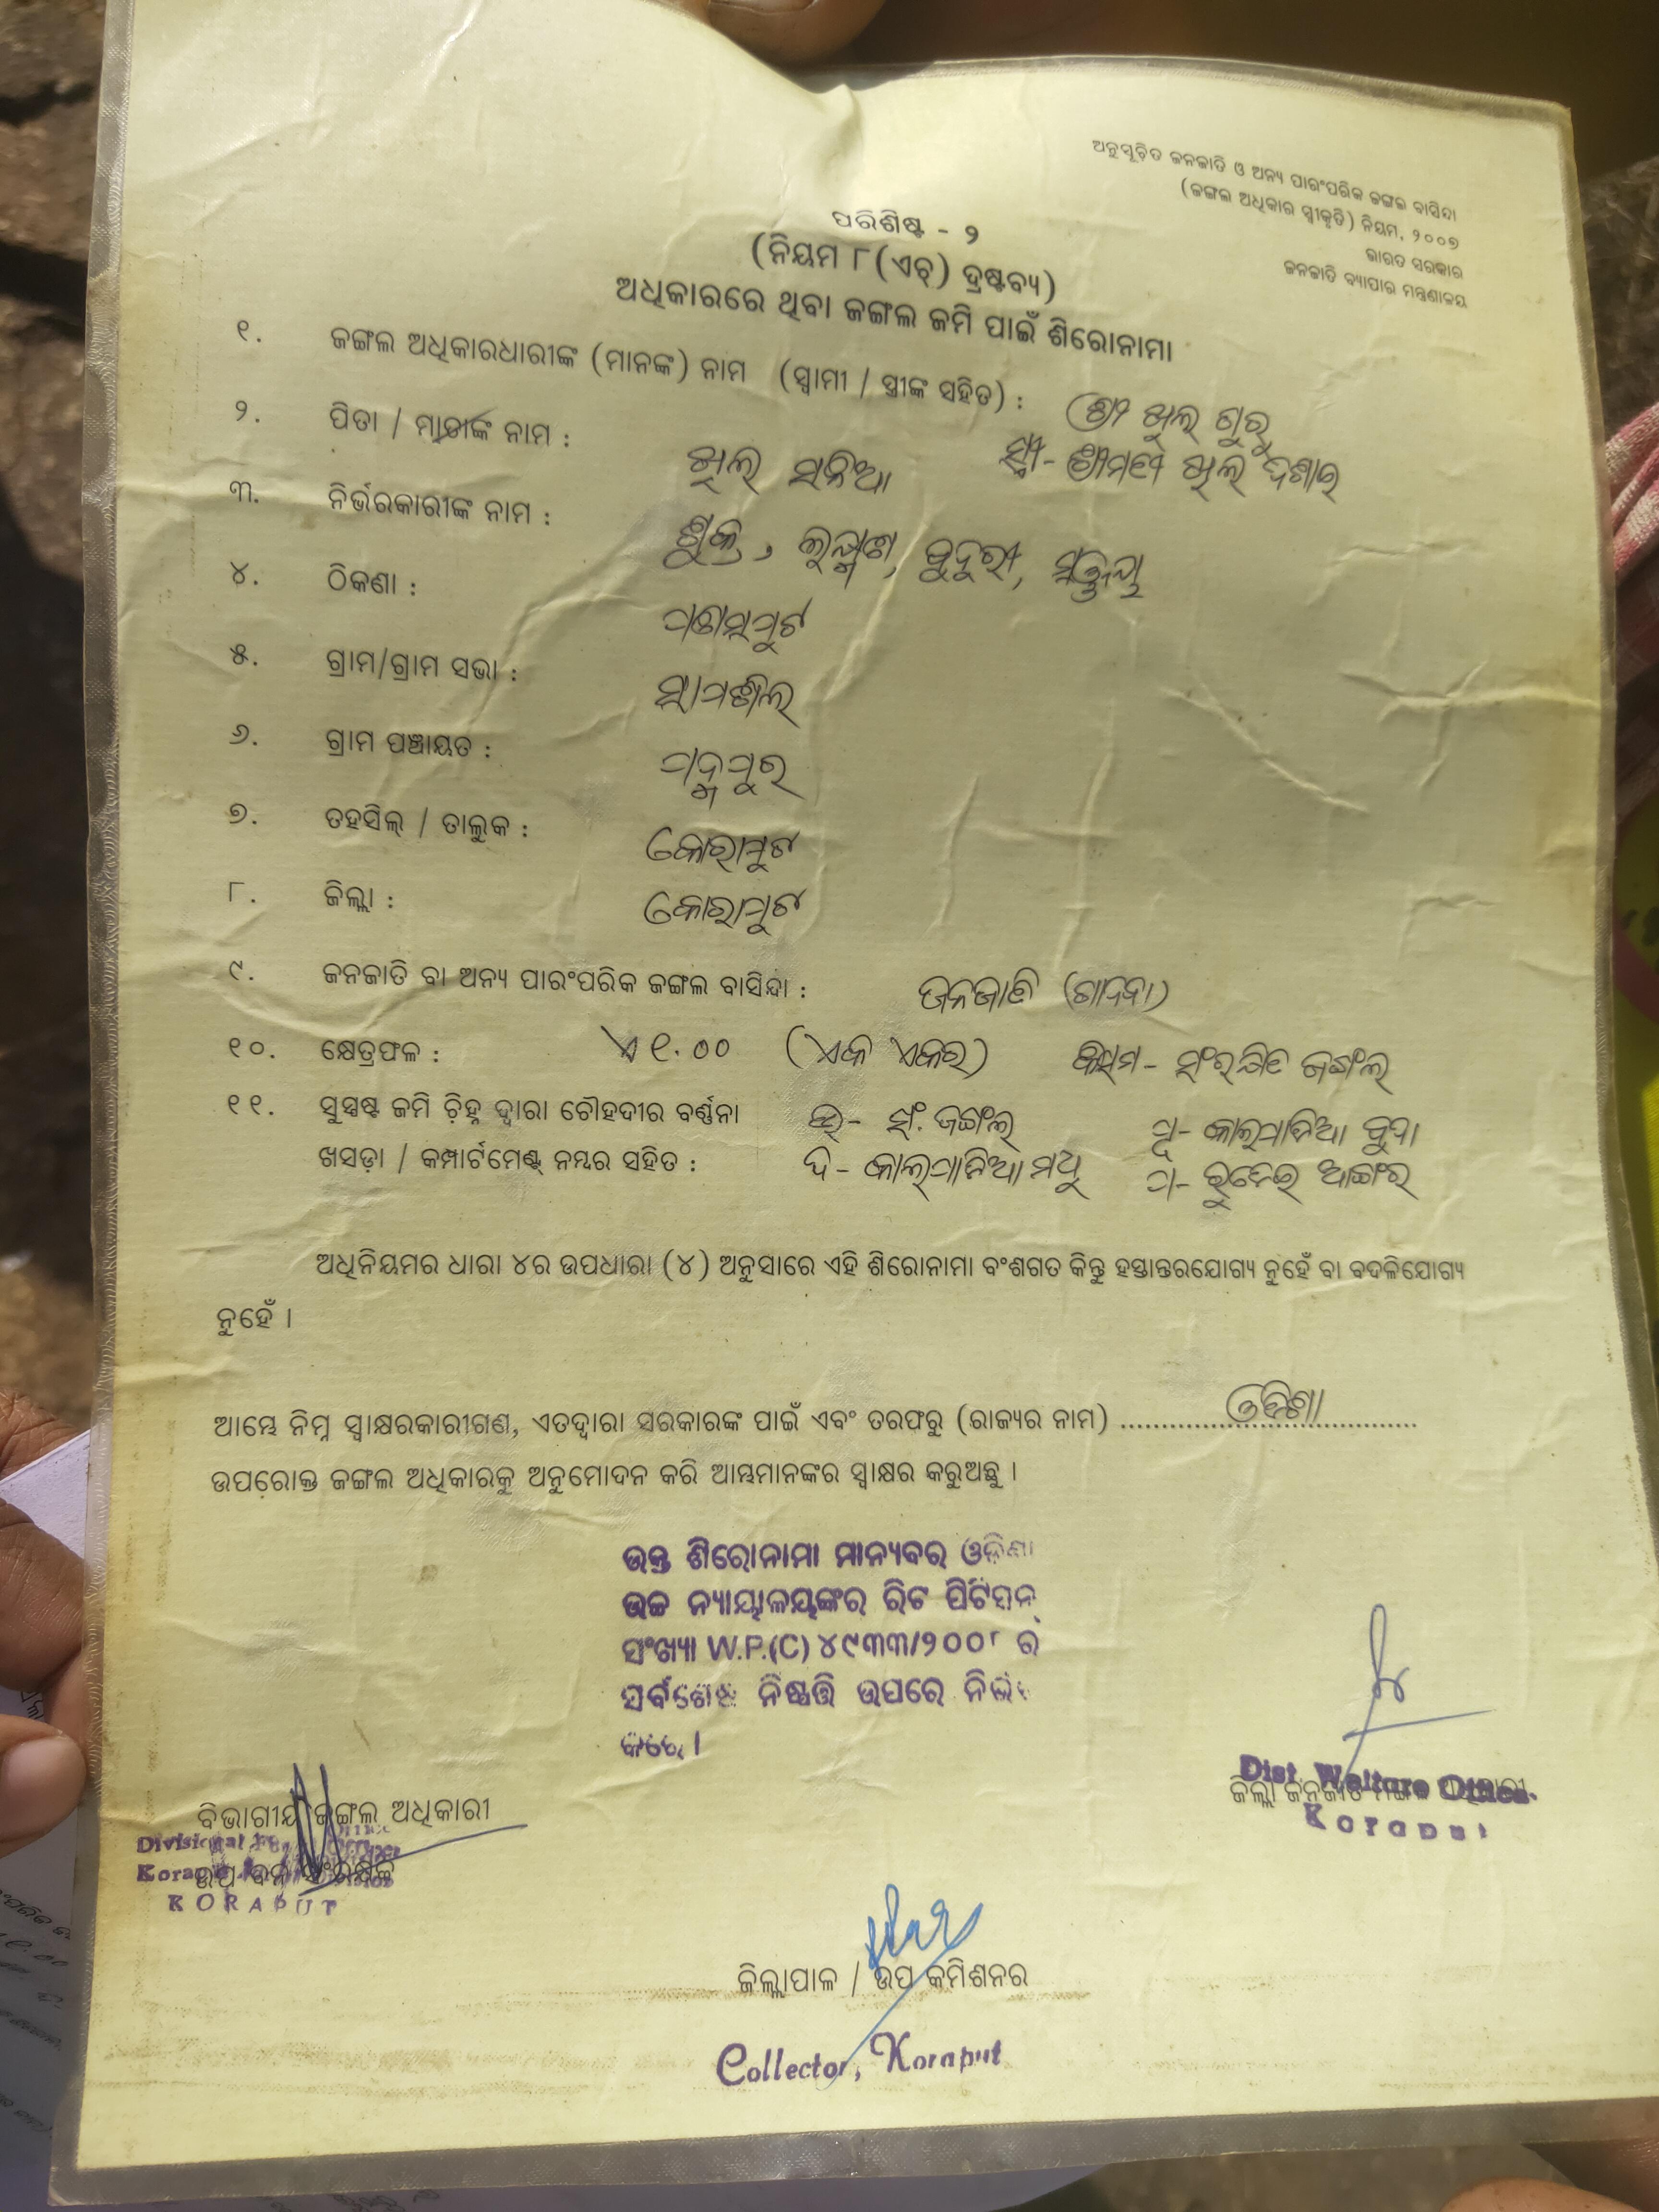 ଅନୁସୂଚିତ ଜନଜାତି ଓ ଅନ୍ୟ ପାରଂପରିକ ଜଙ୍ଗଲ ବାସିନ୍ଦା
(ଜଙ୍ଗଲ ଅଧିକାର ସ୍ୱୀକୃତି) ନିୟମ, ୨୦୦୭
ଭାରତ ସରକାର
ଜନଜାତି ବ୍ୟାପାର ମନ୍ତ୍ରଣାଳୟ
ପରିଶିଷ୍ଟ - ୨
(ନିୟମ ୮(ଏଚ୍) ଦ୍ରଷ୍ଟବ୍ୟ)
ଅଧିକାରରେ ଥିବା ଜଙ୍ଗଲ ଜମି ପାଇଁ ଶିରୋନାମା
୧. ଜଙ୍ଗଲ ଅଧିକାରଧାରୀଙ୍କ (ମାନଙ୍କ) ନାମ (ସ୍ୱାମୀ / ସ୍ତ୍ରୀଙ୍କ ସହିତ) : ଶ୍ରୀ ଖିଲ୍ ଗୁରୁ
ସ୍ତ୍ରୀ- ଶ୍ରୀମତୀ ଖିଲ୍
୨. ପିତା / ମାତାଙ୍କ ନାମ : ଖିଲ୍ ସନିଆ
୩. ନିର୍ଭରକାରୀଙ୍କ ନାମ :
୪. ଠିକଣା :
୫. ଗ୍ରାମ/ଗ୍ରାମ ସଭା :
୬. ଗ୍ରାମ ପଞ୍ଚାୟତ :
୭. ତହସିଲ୍ / ତାଲୁକ : କୋରାପୁଟ
୮. ଜିଲ୍ଲା : କୋରାପୁଟ
୯. ଜନଜାତି ବା ଅନ୍ୟ ପାରଂପରିକ ଜଙ୍ଗଲ ବାସିନ୍ଦା : ଜନଜାତି (ଗାଦବା)
୧୦. କ୍ଷେତ୍ରଫଳ : ଏ ୧.୦୦ (ଏକ ଏକର) କିସମ- ସଂରକ୍ଷିତ ଜଙ୍ଗଲ୍
୧୧. ସୁସ୍ପଷ୍ଟ ଜମି ଚିହ୍ନ ଦ୍ୱାରା ଚୌହଦୀର ବର୍ଣ୍ଣନା ଉ- ସଂ. ଜଙ୍ଗଲ୍ ପୂ-
ଖସଡ଼ା / କମ୍ପାର୍ଟମେଣ୍ଟ୍ ନମ୍ବର ସହିତ : ଦ- ପ-
ଅଧିନିୟମର ଧାରା ୪ର ଉପଧାରା (୪) ଅନୁସାରେ ଏହି ଶିରୋନାମା ବଂଶଗତ କିନ୍ତୁ ହସ୍ତାନ୍ତରଯୋଗ୍ୟ ନୁହେଁ ବା ବଦଳିଯୋଗ୍ୟ
ନୁହେଁ ।
ଆମ୍ଭେ ନିମ୍ନ ସ୍ୱାକ୍ଷରକାରୀଗଣ, ଏତଦ୍ୱାରା ସରକାରଙ୍କ ପାଇଁ ଏବଂ ତରଫରୁ (ରାଜ୍ୟର ନାମ) ଓଡ଼ିଶା
ଉପରୋକ୍ତ ଜଙ୍ଗଲ ଅଧିକାରକୁ ଅନୁମୋଦନ କରି ଆମ୍ଭମାନଙ୍କର ସ୍ୱାକ୍ଷର କରୁଅଛୁ ।
ଉକ୍ତ ଶିରୋନାମା ମାନ୍ୟବର ଓଡ଼ିଶା
ଉଚ୍ଚ ନ୍ୟାୟାଳୟଙ୍କର ରିଟ ପିଟିସନ୍
ସଂଖ୍ୟା W.P.(C) ୪୯୩୩/୨୦୦୮ ର
ସର୍ବଶେଷ ନିଷ୍ପତ୍ତି ଉପରେ ନିର୍ଭର
କରେ ।
ବିଭାଗୀୟ ଜଙ୍ଗଲ ଅଧିକାରୀ
Divisional
ଉପ ବନ ସଂରକ୍ଷକ
KORAPUT
Dist. Welfare Officer
ଜିଲ୍ଲା ଜନଜାତି ମଙ୍ଗଳ ଅଧିକାରୀ
Koraput
ଜିଲ୍ଲାପାଳ / ଉପ କମିଶନର
Collector, Koraput